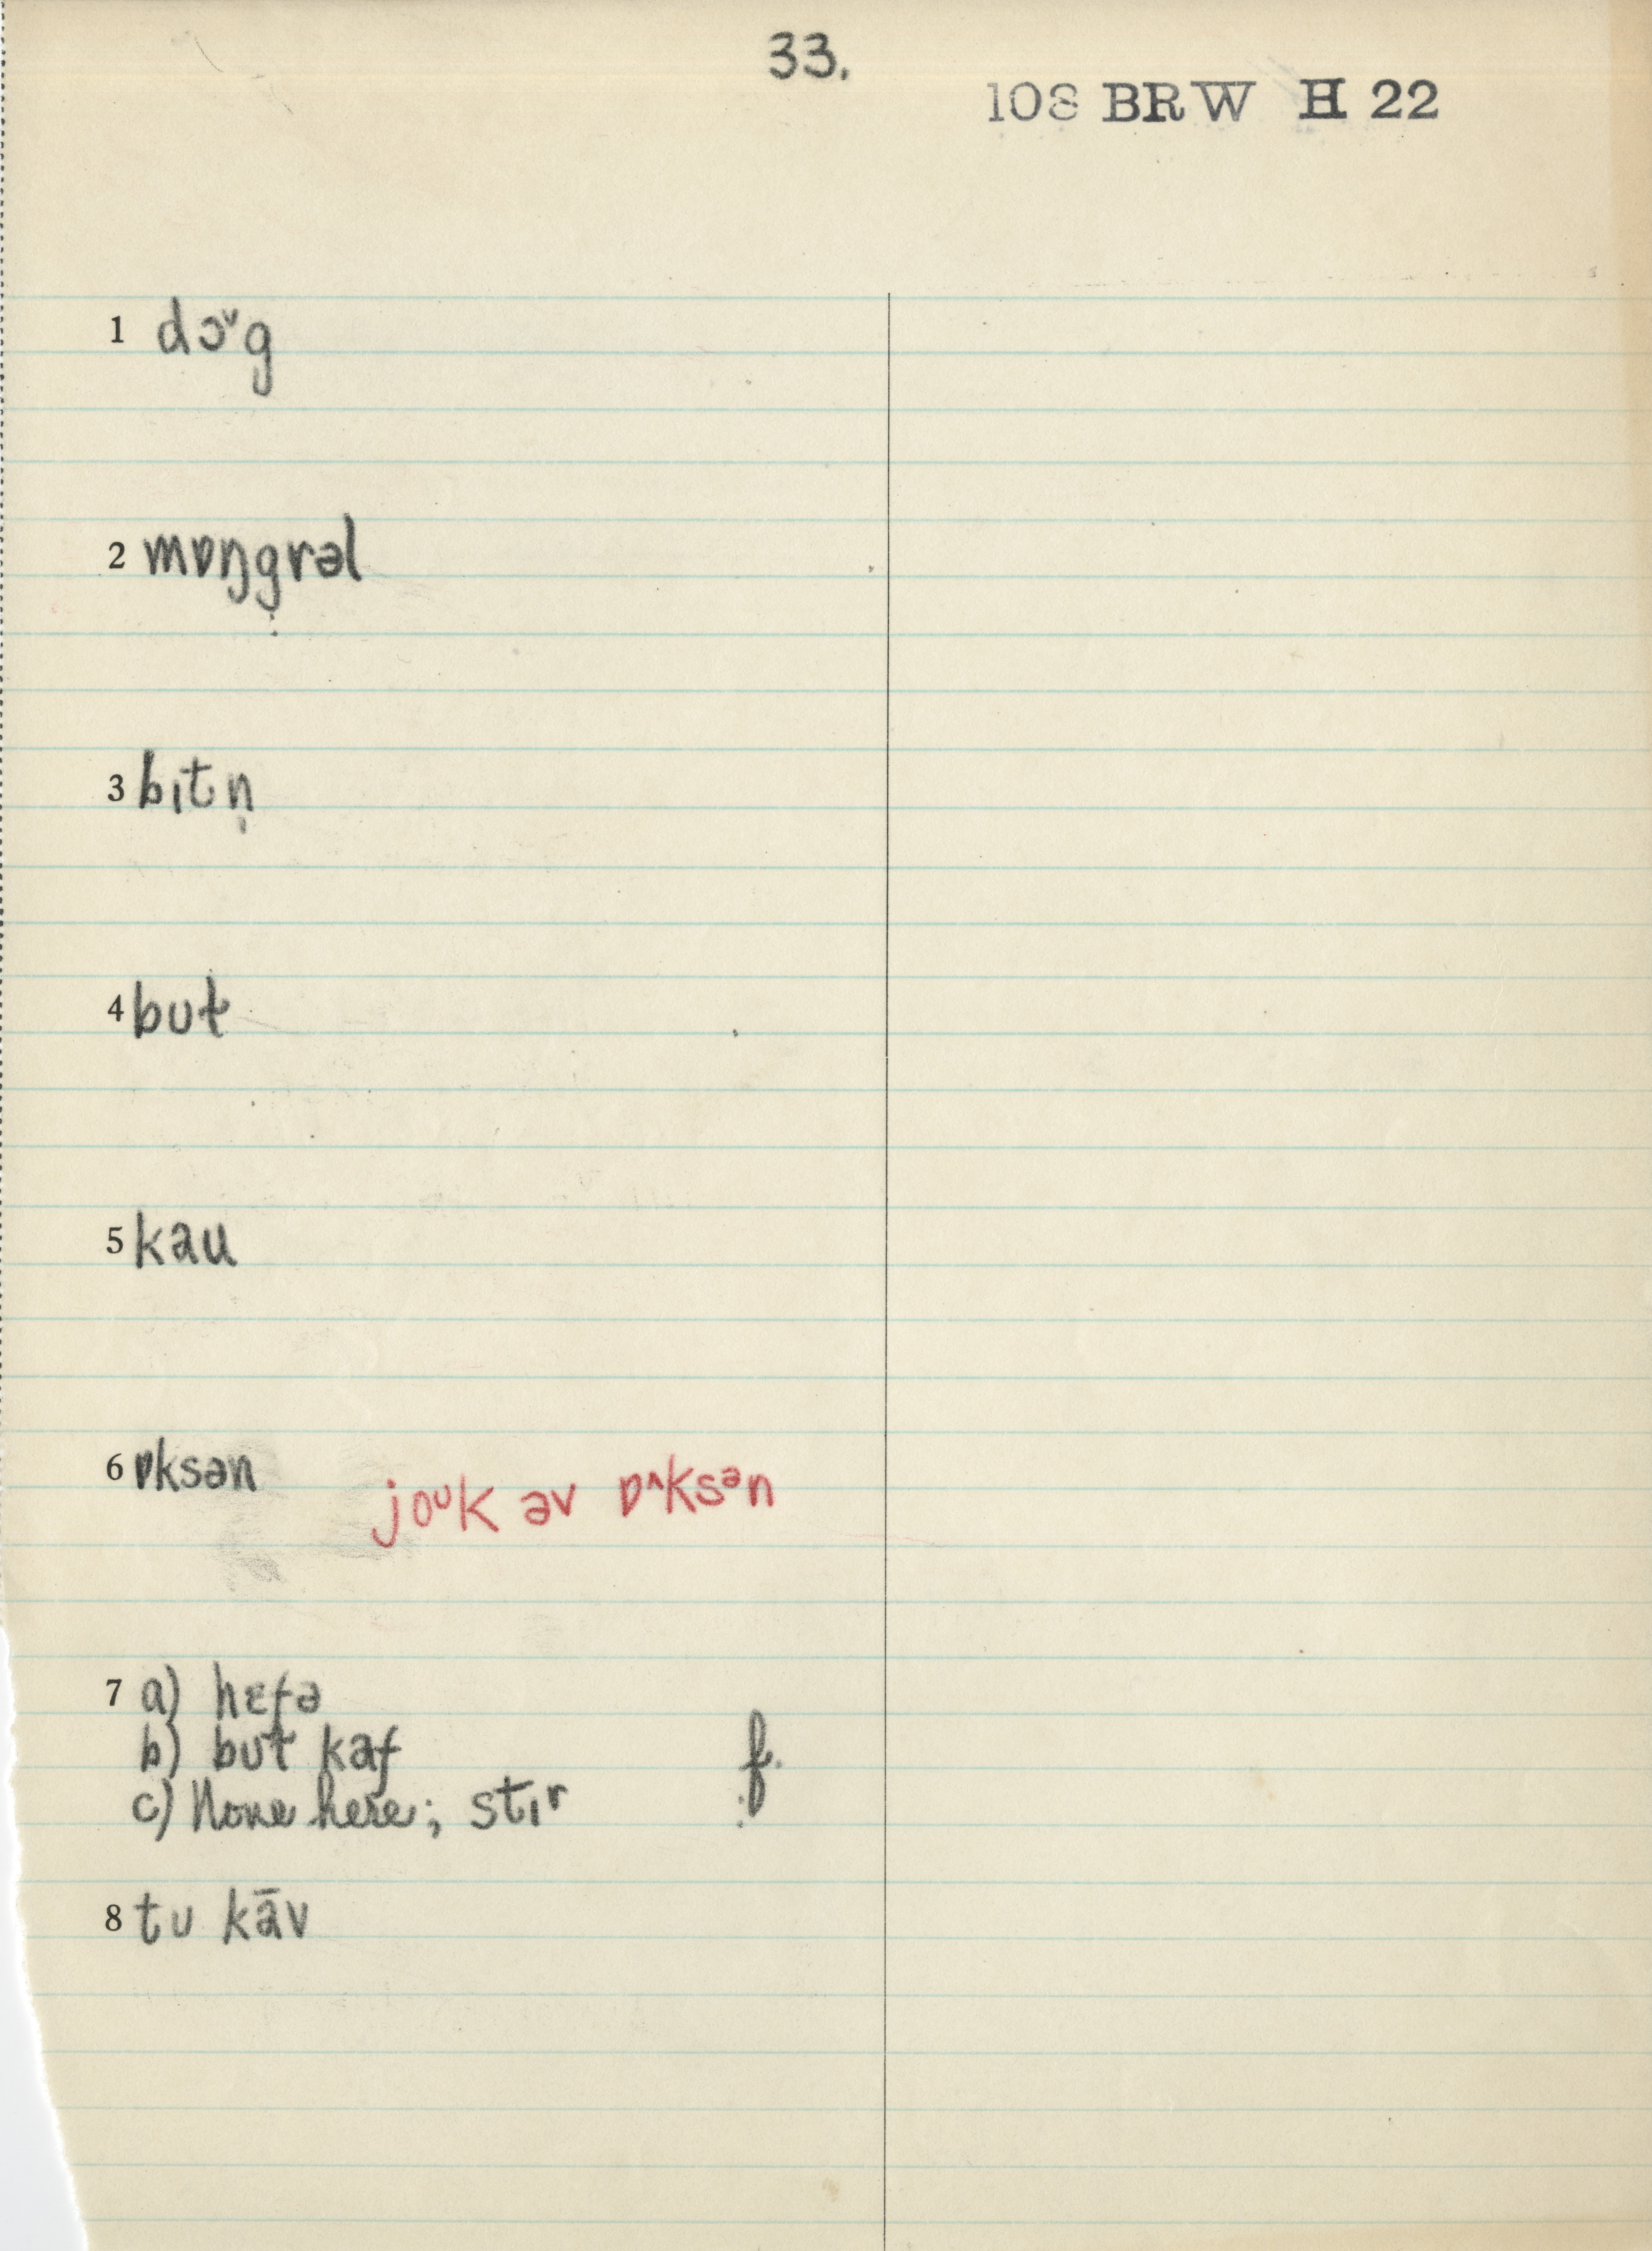 33.
108 BRW H 22
1 dɔˇg
2 mɒŋgrəl
3 bɪtn̩
4 but
5 kau
6 ɒksən joᴜk əv ɒ^ksən
7 a) hɛfə
b) but kaf f.
c) None here; stɪr
8 tu kāv